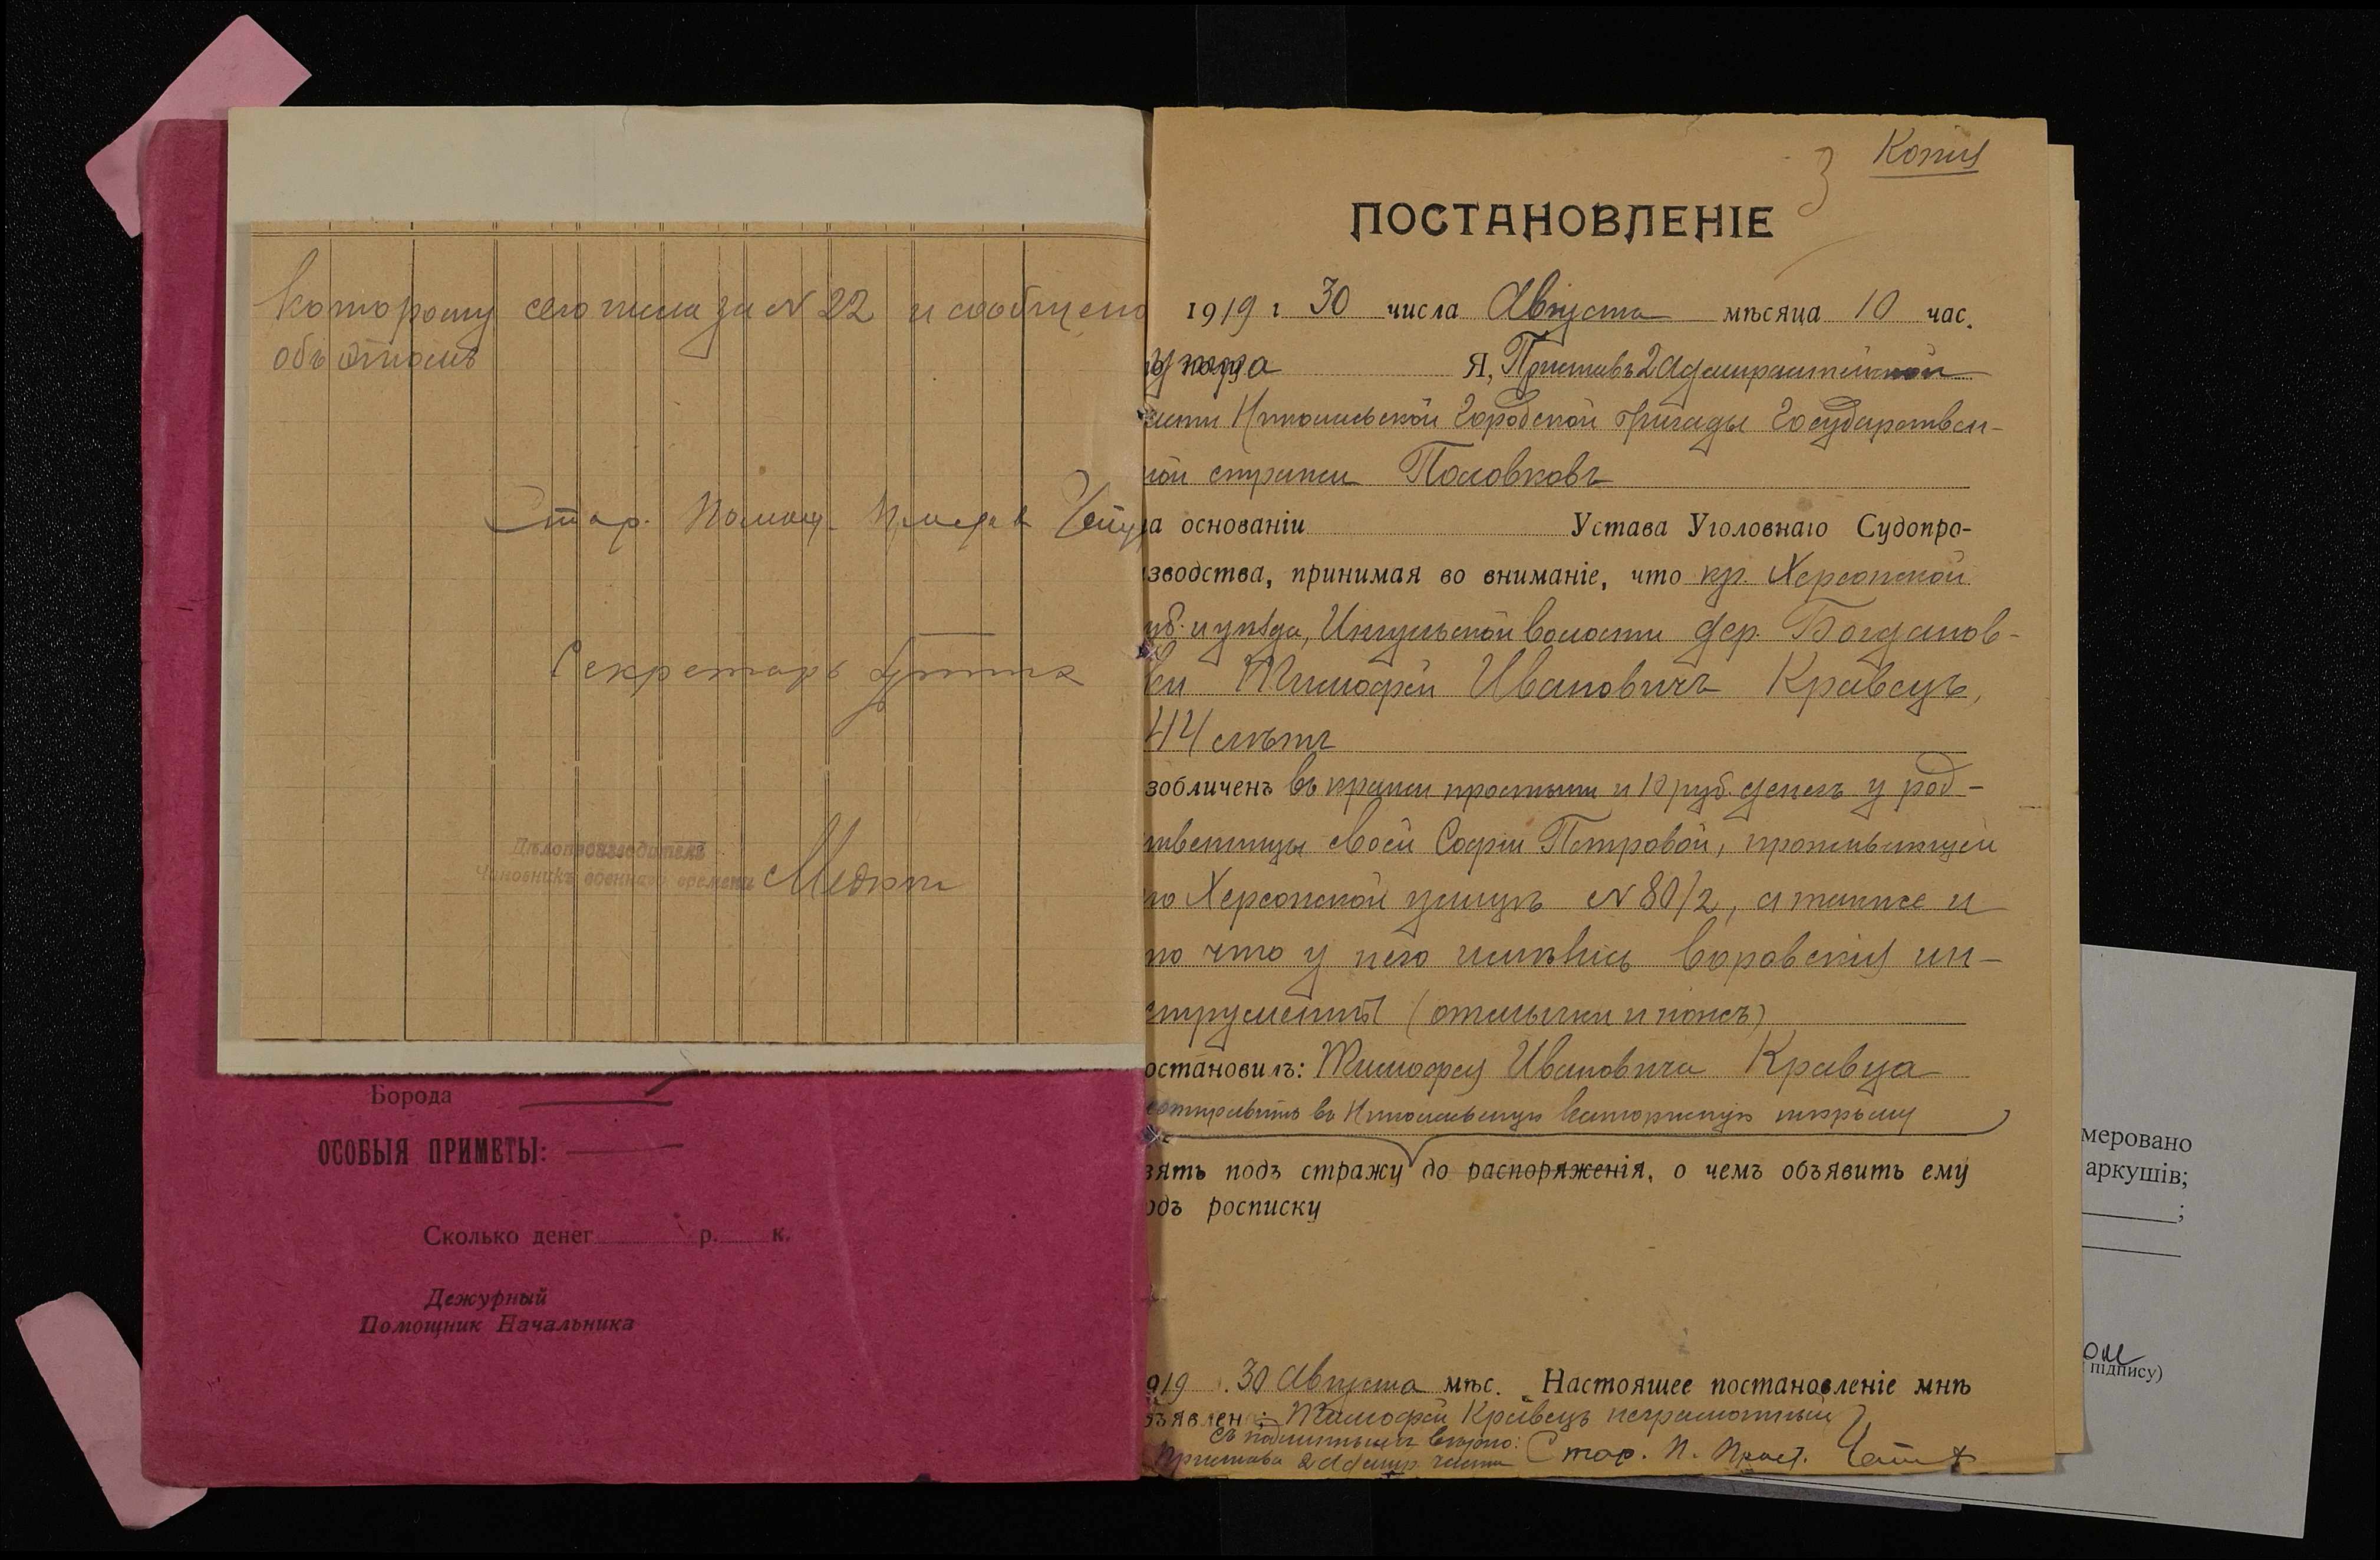 которому сего числа за № 22 и сообщено
объ этомъ
Стар. Помощ.
Секретарь
Дѣлопроизводитель
Чиновникъ военнаго времени
Борода
ОСОБЫЯ ПРИМЕТЫ:
Сколько денег р. к.
Дежурный
Помощник Начальника
3 Копія
ПОСТАНОВЛЕНІЕ
1919 г 30 числа Августа мѣсяца 10 час.
Я, Приставъ 2 Адмиралтейской
части Николаевской Городской бригады Государствен-
ной стражи Половковъ
на основаніи Устава Уголовнаго Судопро-
изводства, принимая во вниманіе, что кр. Херсонской
губ. и уѣзда, Ингульской волости дер. Богданов-
ки Тимофей Ивановичъ Кравецъ,
44 лѣтъ
изобличенъ въ кражи простыни и 10 руб. денегъ у род-
ственницы своей Софіи Петровой, проживающей
по Херсонской улицѣ № 80/2, а также и
то что у него имѣлись воровскія ин-
струменты (отмычки и ножъ)
постановилъ: Тимофея Ивановича Кравца
отправить въ Николаевскую каторжную тюрьму
взять подъ стражу до распоряженія, о чемъ объявить ему
подъ росписку
1919 г. 30 Августа мѣс. Настоящее постановленіе мнѣ
объявлено: Тимофей Кравецъ неграмотный
съ подлиннымъ вѣрно:
Пристава 2 Адмир. части Стар. П. Прист.
меровано
аркушів;
підпису)